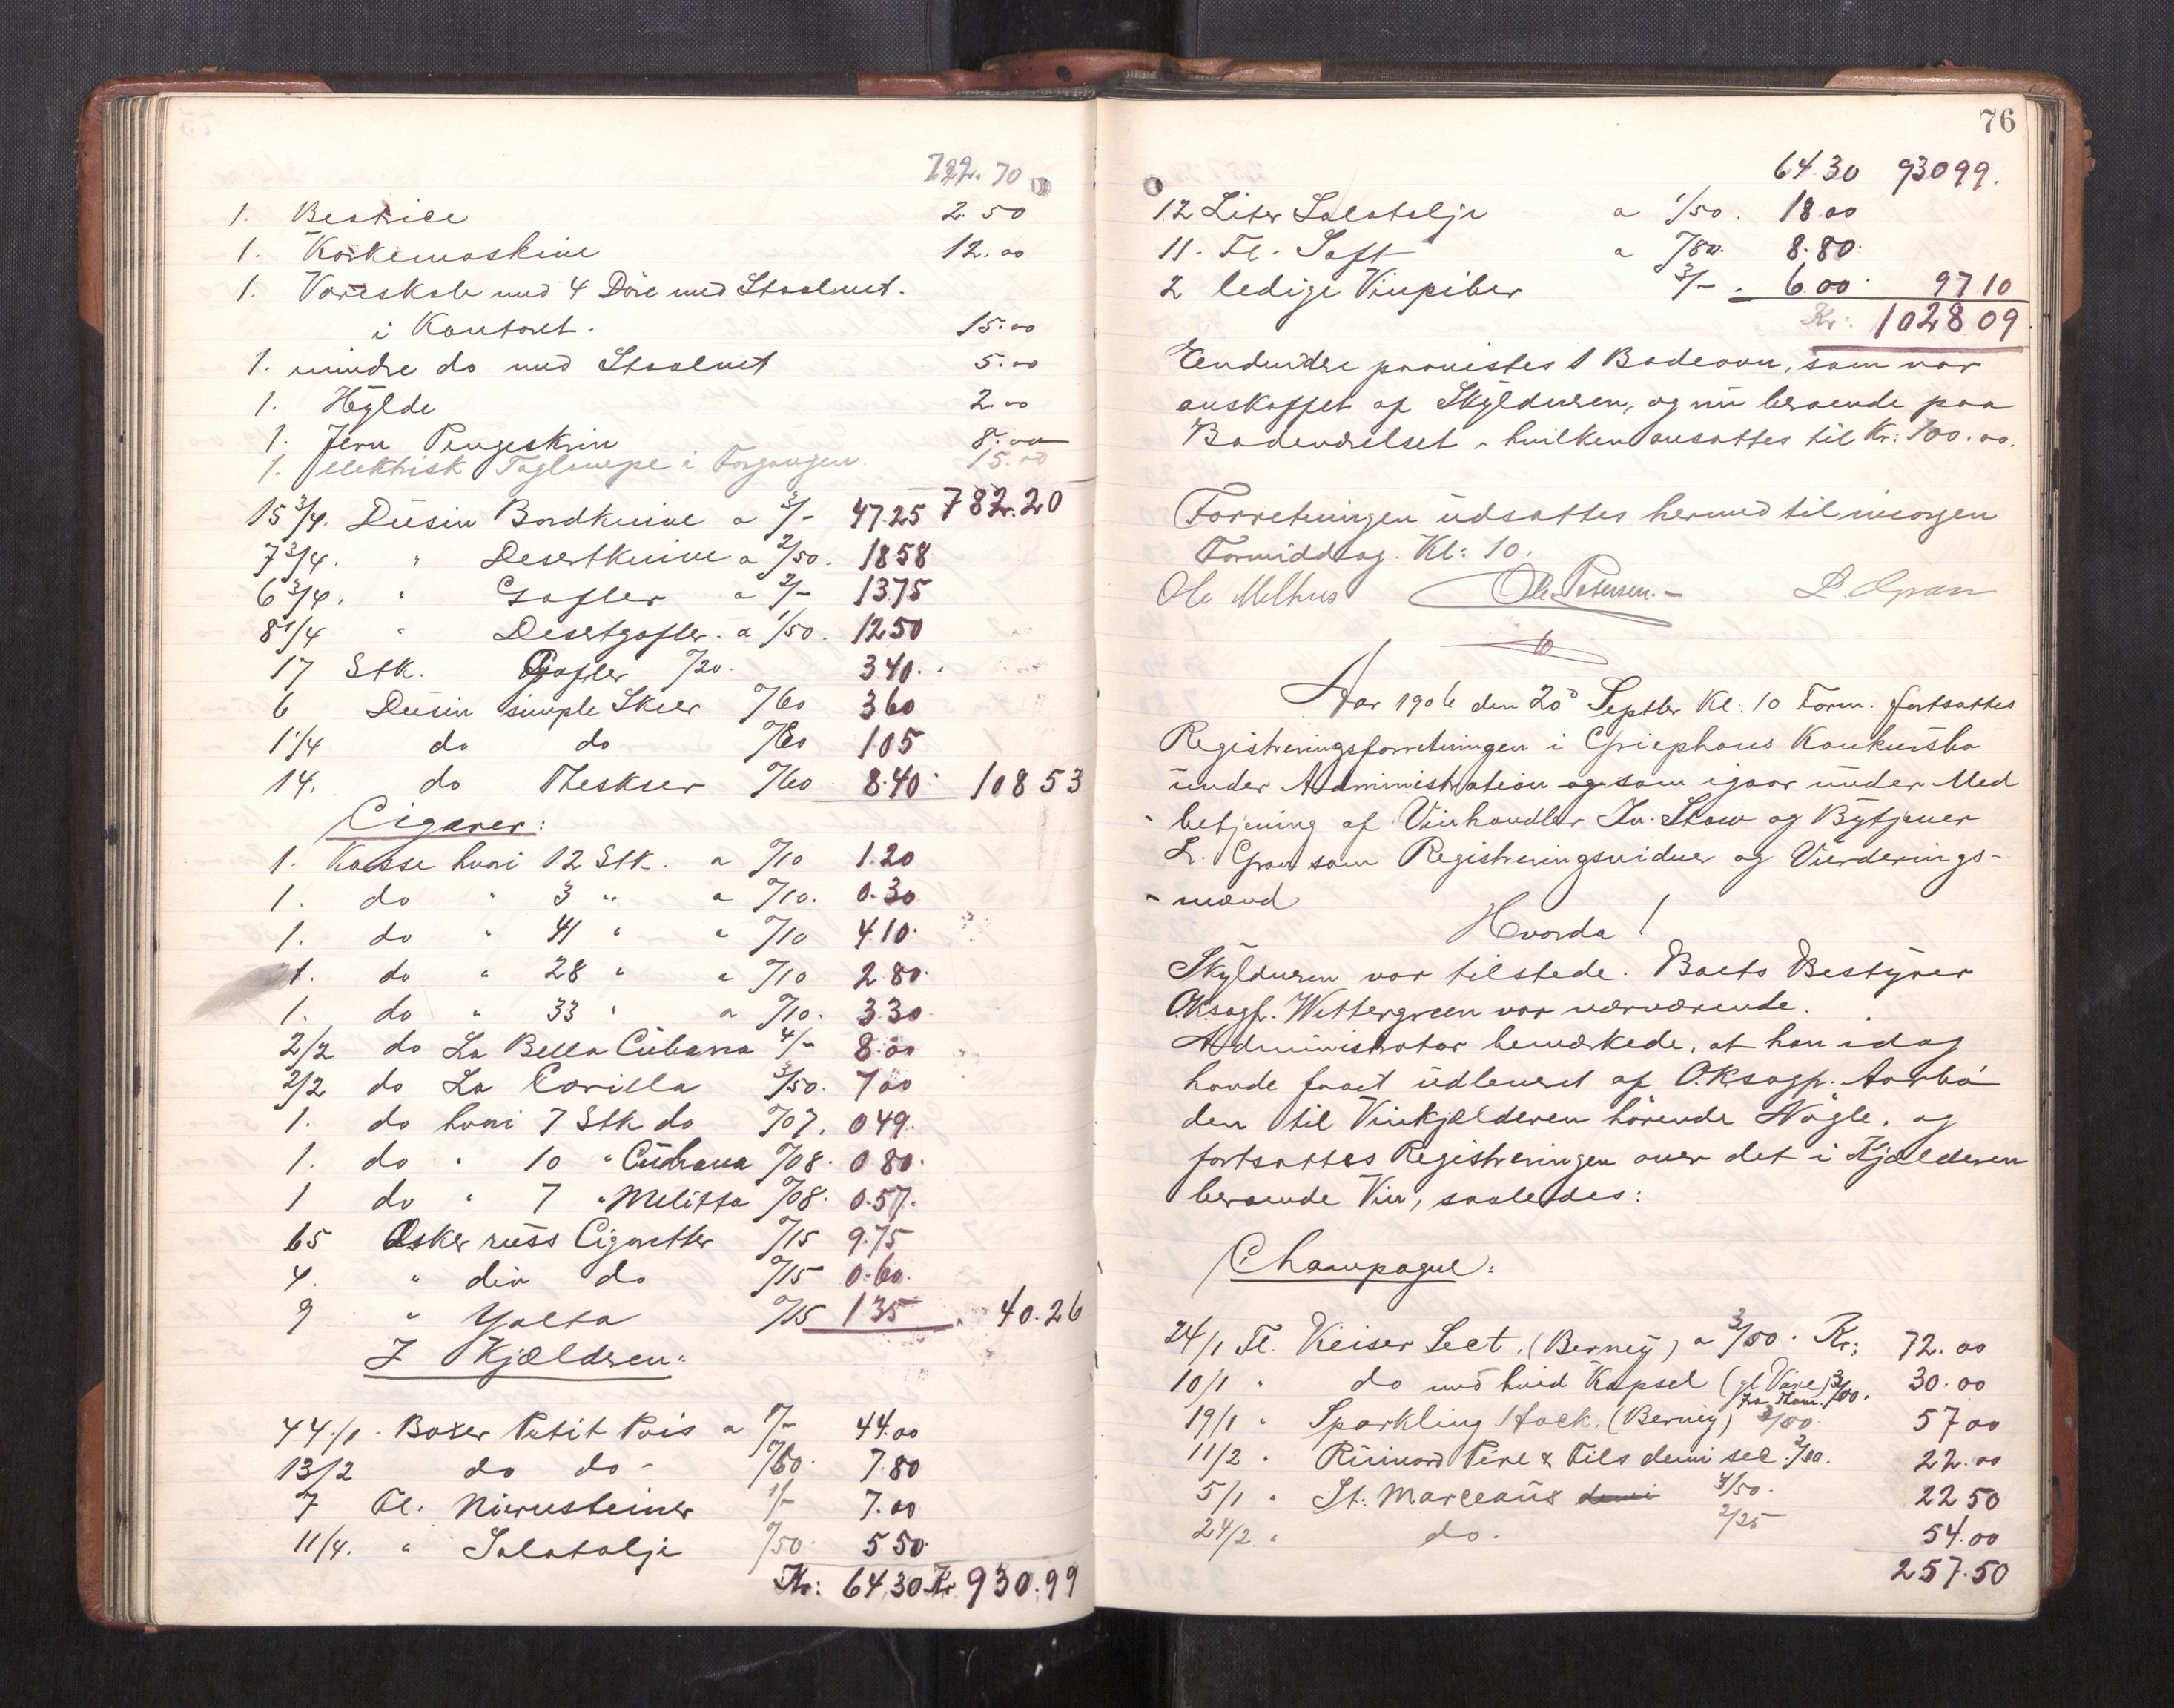 722.70
1. Bestice 2.50
1. Korkemaskine 12.00
1. Vareskab med 4 Döre med Staalnet.
i Kontoret. 15.00
1. mindre do med Staalnet 5.00
1. Hÿlde 2.00
1. Jern Pengeskrin 8.00
1. elektrisk Taglampe i Forgangen 15.00
15 3/4. Dusin Bordknive a 3/- 47.25 782.20
7 3/4. " Desertknive a 2/50. 1858
6 3/4. " Gafler a 2/- 1375
8 1/4 " Desertgafler. a 1/50. 1250
17 Stk. Gafler 0/20. 340.
6 Dusin simple Skeer 0/60 360
1 1/4 do do 105
14. do Theskeer 0/60 8.40 10853
Cigarer:
1. Kasse hvori 12 Stk. a 0/10 1.20
1. do " 3 " a 0/10. 0.30
1. do " 41 " " 0/10 4.10
1. do " 28 " " 0/10 2.80
1. do " 33 " a 0/10. 3.30
2/2 do La Bella Cubana 4/- 8.00
2/2 do La Corilla 3/50. 7.00
1. do hvori 7 Stk do 0/07. 049.
1. do " 10 " Cubana 0/08. 0 80.
1 do " 7 " Melitta 0/08. 0.57.
65 Æsker russ Cigaretter 0/15 9.75
4. " div do 0/15 0.60.
9 " Yalta 0/15 135 40.26
I Kjælderen:
44/1 Boxer Petit Pois a 1/- 44.00
13/2 do do - 0/60. 7.80
7 Fl. Niersteiner 1/- 7.00
11/4. " Salatolje 0/50. 5 50
Kr: 64,30 Kr 930.99
76
64.30 93099.
12 Liter Salatolje a 1/50. 18.00
11. Fl. Saft a 0/80. 8.80.
2 ledige Vinpiber 3/-. 6.00 9710
Kr: 1028.09
Eendvidre paavistes 1 Badeovn, som var
anskaffet af Skÿldneren, og nu beroende paa
Badeværelset, hvilken ansattes til Kr: 100.00.
Forretningen udsattes hermed til imorgen
Formiddag. Kl: 10.
Ole Melhus Ole Petersen.- L. Gran
Aar 1906 den 20 Septbr Kl. 10 Form. fortsattes
Registreringsforretningen i Griephans Konkursbo
under Administration og som igaar under Med
betjening af Vinhandler Ín. Staw og Bÿtjener
L. Gran som Registreringsvidner og Vurderings-
- mænd
Hvorda!
Skÿldneren var tilstede. Boets Bestÿrer
O.R.sagf. Wettergreen var nærværende.
Administrator bemærkede, at han idag
havde faaet udleveret af O.R.sagf. Aarbo
den til Vinkjælderen hörende Nögle, og
fortsattes Registreringen over det i Kjælderen
beroende Vin, saaledes:
Champagne:
24/1 Fl. Keiser Sect. (Berneÿ) a 3/00. Kr: 72.00
10/1 " do med hvid Kapsel (gl Vare) 3/00. 30.00
19/1 " Sparkling Hock. (Berneÿ) 3/00. 57 00
11/2 " Ruinard Pére & Fils demi sec. 2/00. 22.00
5/1 " St: Marceaux demi 4/50. 22 50
24/2 " do. 2/25 54.00
257.50